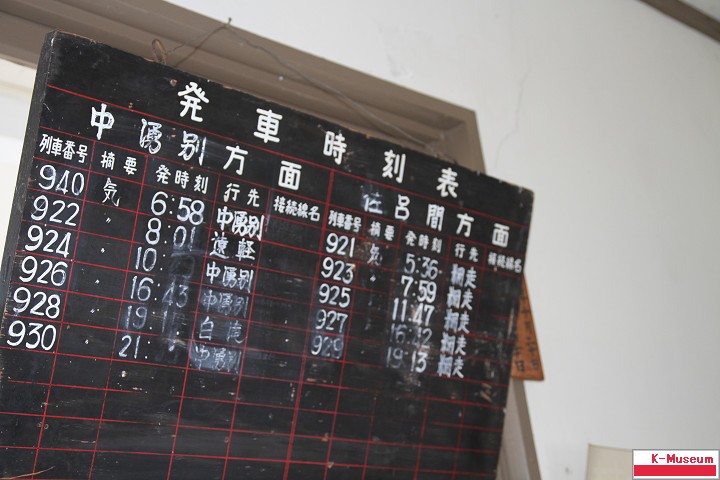 発車時刻表
中湧別方面 佐呂間方面
列車番号 摘要 発時刻 行先 接続線名 列車番号 摘要 発時刻 行先 接続線名
940 気 6:58 中湧別 921 気 5:36 網走
922 〃 8:01 遠軽 923 7:59 網走
924 〃 10: 中湧別 925 11:47 網走
926 〃 16:43 中湧別 927 16:42 網走
928 〃 19: 白滝 929 19:13 網走
930 21: 中湧別
K-Museum